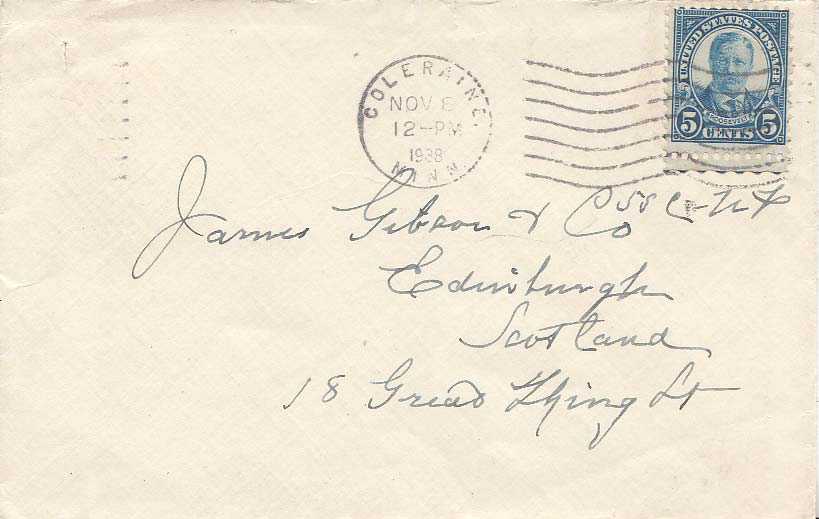 UNITED STATES POSTAGE
ROOSEVELT
5 CENTS 5
COLERAINE,
NOV 8
12-PM
1938
MINN.
James Gibson & Co
Edinburgh
Scotland
18 Great Thing St